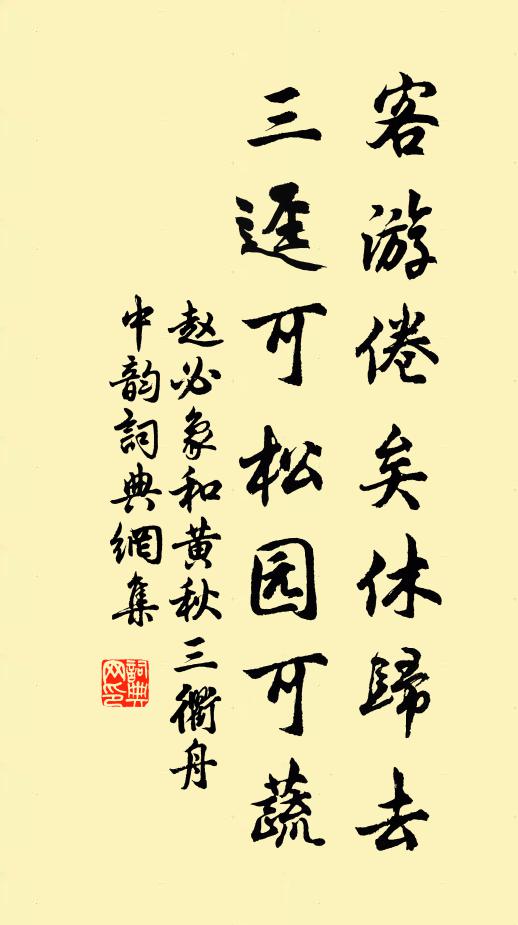 客游倦矣休歸去
三迳可松园可蔬
赵必象和黄秋三衢舟
中韵詞典網集
詞典
网印